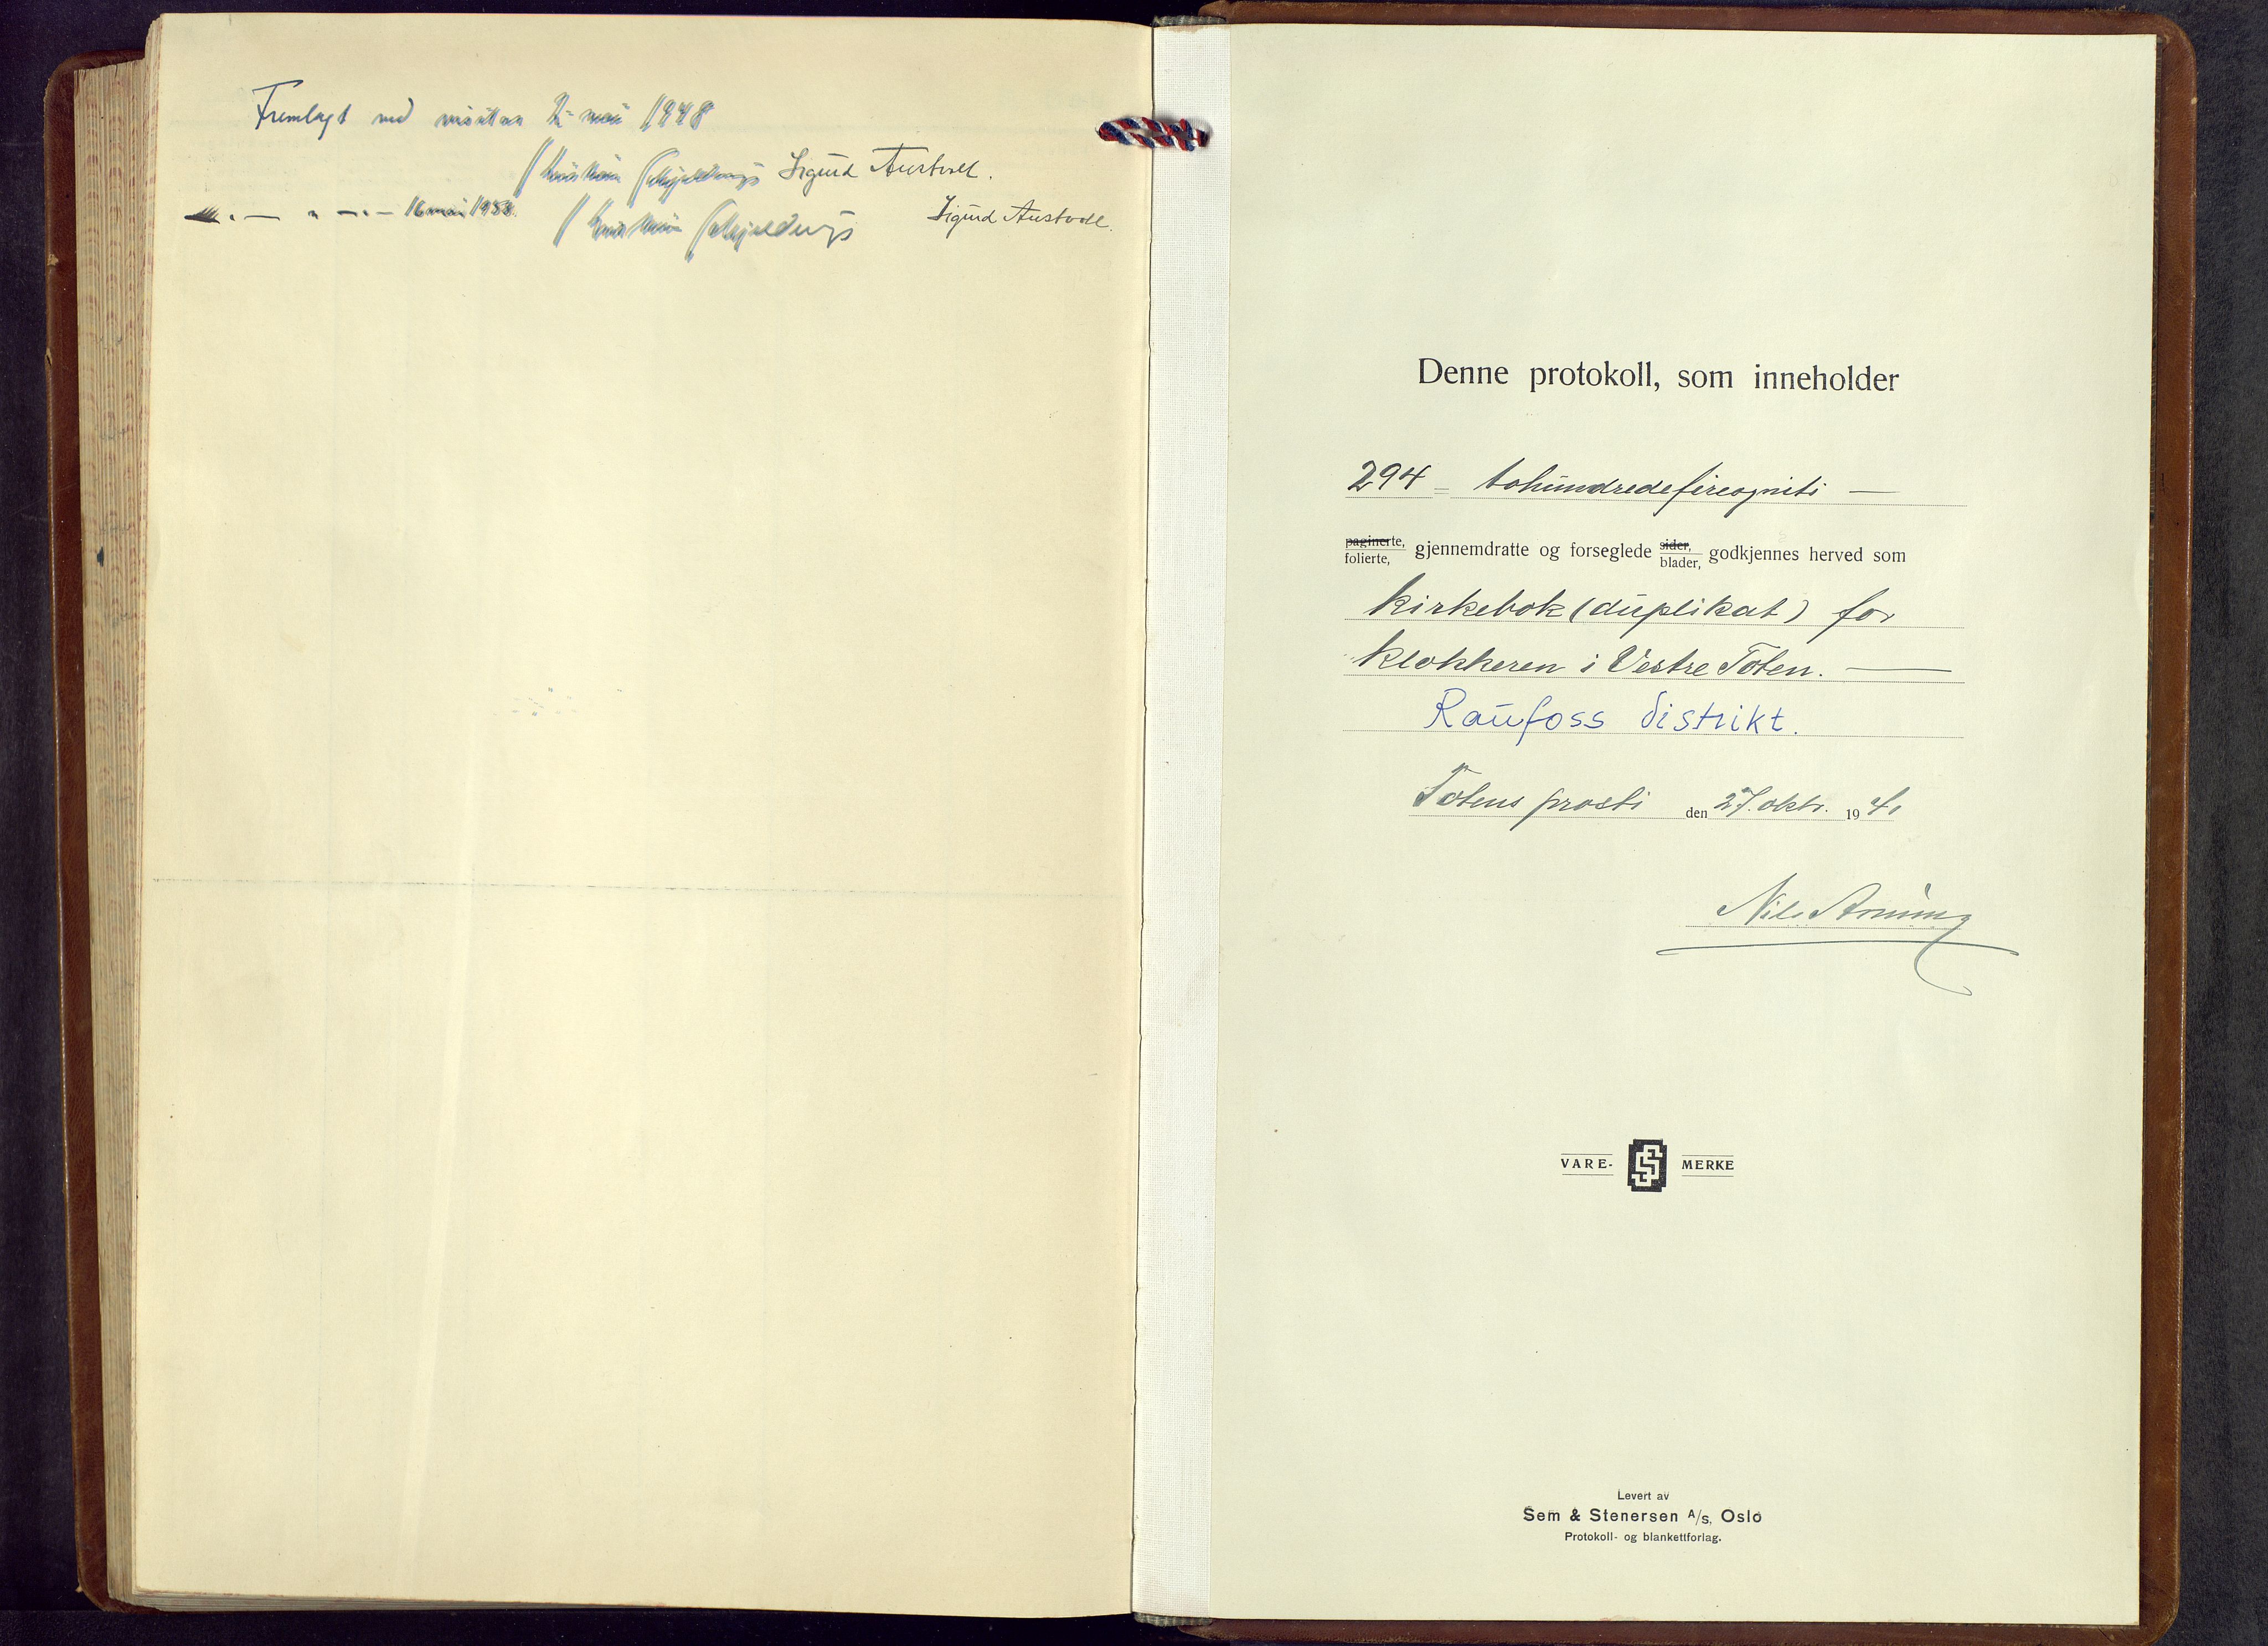 Fremlagt ved visitas 2- mai 1948
Kristian Schjelderup Sigurd Austvoll.
— " — " — . — 16 mai 1953. Kristian Schjelderup Sigurd Austvoll.
Denne protokoll, som inneholder
294 = tohundredefireogniti —
paginerte,
folierte, gjennemdratte og forseglede sider,
blader, godkjennes herved som
kirkebok (duplikat) for
klokkeren i Vestre Toten. —
Raufoss distrikt.
Totens prosti den 27. oktr. 1941
Nils
VARE- MERKE
Levert av
Sem & Stenersen A/S, Oslo
Protokoll- og blankettforlag.